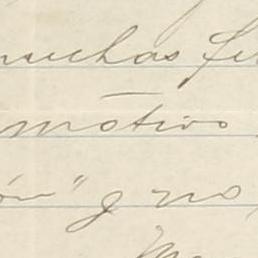 muchas fe
motivo
ón" y no,